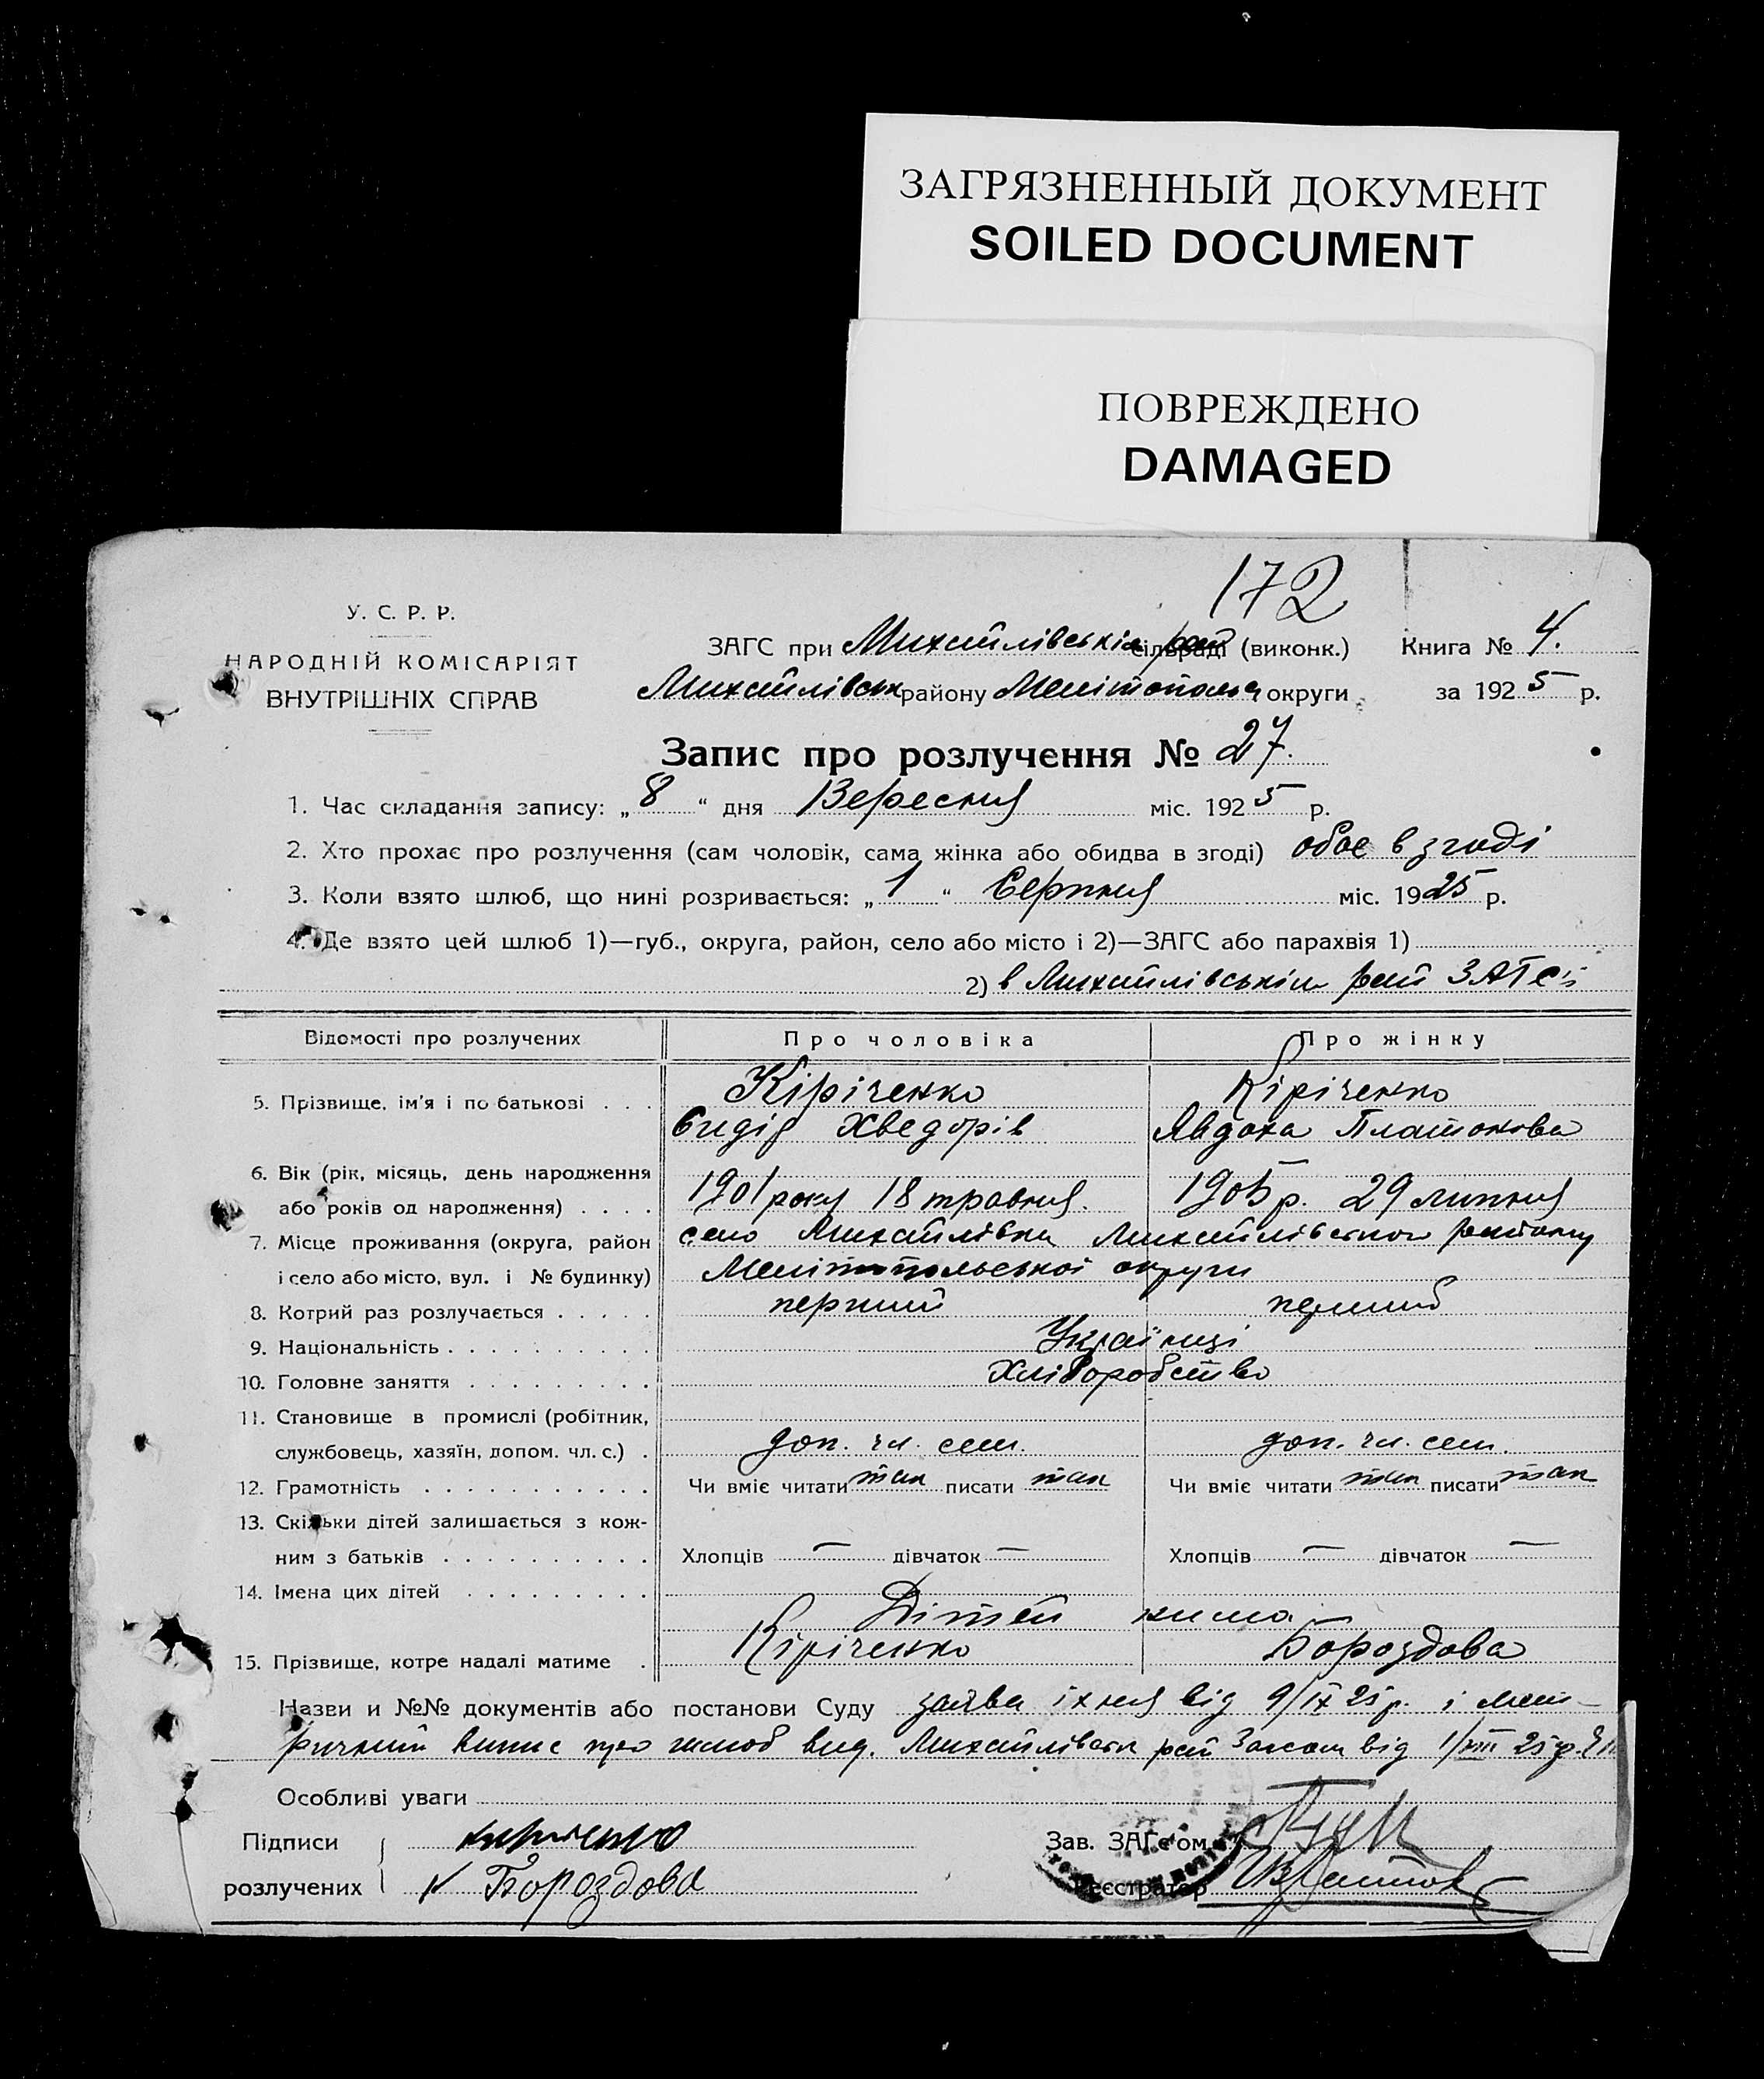 ЗАГРЯЗНЕННЫЙ ДОКУМЕНТ
SOILED DOCUMENT
ПОВРЕЖДЕНО
DAMAGED
172
У. С. Р. Р.
НАРОДНІЙ КОМІСАРІЯТ
ВНУТРІШНІХ СПРАВ
ЗАГС при Михайлівськім рай сільраді (виконк.) Книга № 4.
Михайлівськ району Мелітопольс округи за 1925 р.
Запис про розлучення № 27.
1. Час складання запису: „8“ дня Вересня міс. 1925 р.
2. Хто прохає про розлучення (сам чоловік, сама жінка або обидва в згоді) обоє в згоді
3. Коли взято шлюб, що нині розривається: „1“ Серпня міс. 1925 р.
4. Де взято цей шлюб 1)—губ., округа, район, село або місто і 2)—ЗАГС або парахвія 1)
2) в Михайлівськім рай ЗАГСі
Відомості про розлучених Про чоловіка Про жінку
5. Прізвище, ім'я і по батькові . . . Кіріченко Кіріченко
Хведорів Явдоха Платонова
6. Вік (рік, місяць, день народження
або років од народження) . . . . 1901 року 18 травня. 1905 р. 29 липня
7. Місце проживання (округа, район село Михайлівка Михайлівського району
і село або місто, вул. і № будинку) Мелітопольської округи
8. Котрий раз розлучається . . . . . перший перший
9. Національність . . . . . . . . . . Українці
10. Головне заняття . . . . . . . . . Хліборобство
11. Становище в промислі (робітник,
службовець, хазяїн, допом. чл. с.) . доп. чл. сем. доп. чл. сем.
12. Грамотність . . . . . . . . . . . Чи вміє читати так писати так Чи вміє читати так писати так
13. Скільки дітей залишається з кож-
ним з батьків . . . . . . . . . . Хлопців — дівчаток — Хлопців — дівчаток —
14. Імена цих дітей . . . . . . . . .
Дітей нима
15. Прізвище, котре надалі матиме . Кіріченко Бороздова
Назви и №№ документів або постанови Суду заява іхня від 9/IX 25 р. і мет-
ричний випис про шлюб вид. Михайлівськ рай Загсом від 1/VIII 25 р.
Особливі уваги
Підписи Зав. ЗАГс'ом
розлучених Бороздова Реєстратор